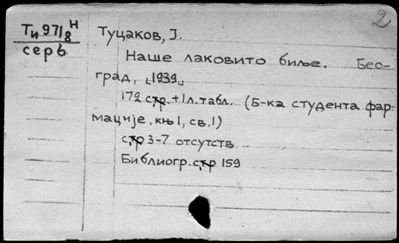 2
Ти 97/8 Н
серв.
Туцаков, J.
Наше лаковито биље. Бео-
град, [1939]
172 стр. +1 л. табл. (Б-ка студента фар-
мације, књ 1, св. 1)
стр 3-7 отсутств.
Библиогр. стр 159